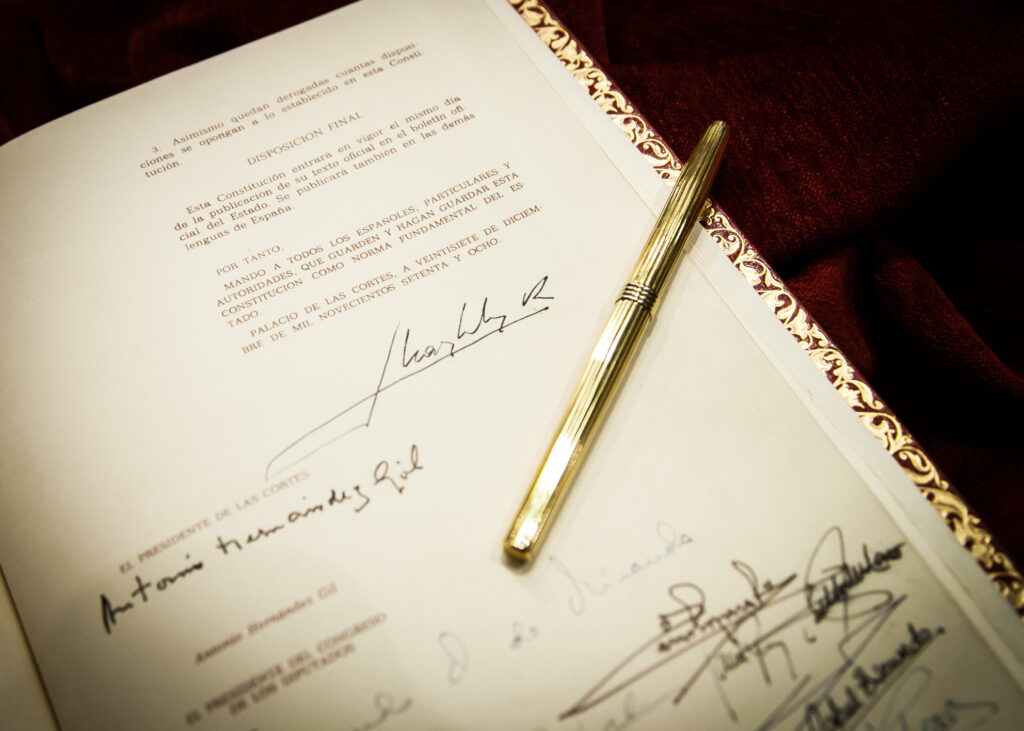 3. Asimismo quedan derogadas cuantas disposi-
ciones se opongan a lo establecido en esta Consti-
tución.
DISPOSICION FINAL
Esta Constitución entrará en vigor el mismo día
de la publicación de su texto oficial en el boletín ofi-
cial del Estado. Se publicará también en las demás
lenguas de España.
POR TANTO,
MANDO A TODOS LOS ESPAÑOLES, PARTICULARES Y
AUTORIDADES, QUE GUARDEN Y HAGAN GUARDAR ESTA
CONSTITUCION COMO NORMA FUNDAMENTAL DEL ES-
TADO.
PALACIO DE LAS CORTES, A VEINTISIETE DE DICIEM-
BRE DE MIL NOVECIENTOS SETENTA Y OCHO.
EL PRESIDENTE DE LAS CORTES
Antonio Hernández Gil
Antonio Hernández Gil
EL PRESIDENTE DEL CONGRESO
DE LOS DIPUTADOS